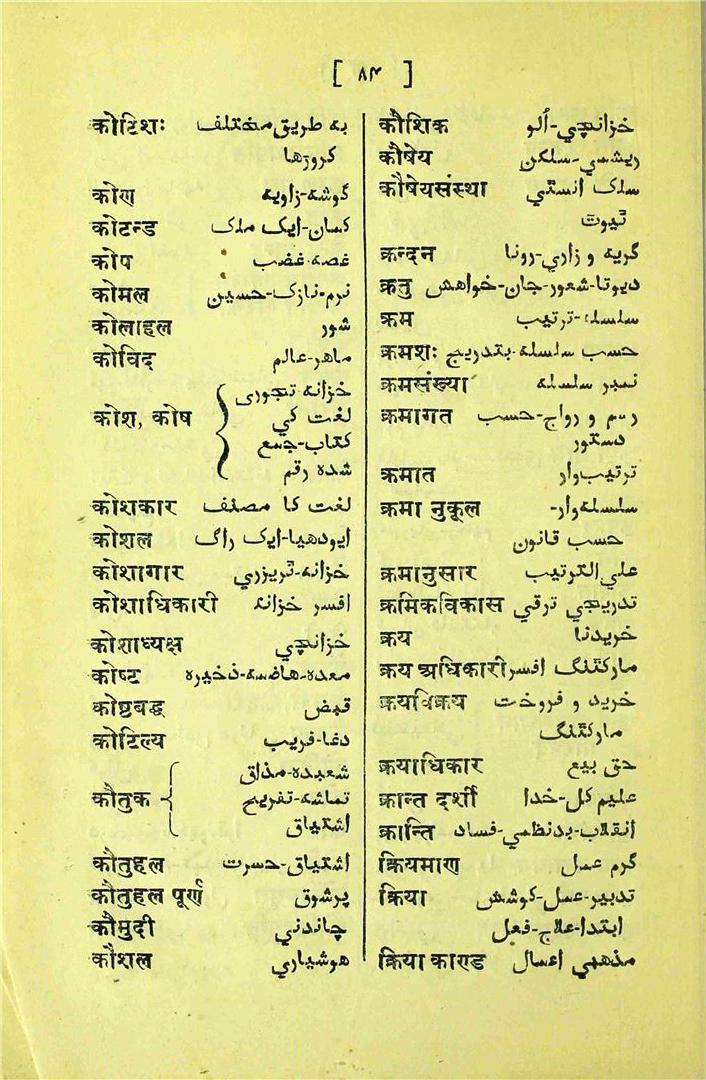 [ ٨٣ ]
कोटिशः به طريق مختلف
کروڑها
कोण گوشه-زاويه
कोटन्ड کسان-ايک ملک
कोप غصه-غضب
कोमल نرم-نازک-حسين
कोलाहल شور
कोविद ماهر-عالم
कोश, कोष خزانه تجوری
لغت کي
کتاب-جمع
شده رقم
कोशकार لغت کا مصنف
कोशल ايودهيا-ايک راگ
कोशागार خزانه-ٹريزري
कोशाधिकारी افسر خزانه
कोशाध्यक्ष خزانچي
कोष्ट معده-هاضمه-ذخيره
कोष्ठबद्ध قبض
कोटिल्य دغا-فريب
कौतुक شعبده-مذاق
تماشه-تفريح
اشتياق
कौतुहल اشتياق-حسرت
कौतुहल पूर्ण پرشوق
कौमुदी چاندني
कौशल هوشياري
कौशिक خزانچي-اُلو
कौषेय ريشمي-سلکن
कौषेयसंस्था سلک انسٹي
ٹيوٹ
क्रन्दन گريه و زاري-رونا
क्रतु ديوتا-شعور-جان-خواهش
क्रम سلسله-ترتيب
क्रमशः حسب سلسله-بتدريج
क्रमसंख्या نمبر سلسله
क्रमागत رسم و رواج-حسب
دستور
क्रमात ترتيب‌وار
क्रमा नुकूल سلسله‌وار-
حسب قانون
क्रमानुसार علي الترتيب
क्रमिकविकास تدريجي ترقي
क्रय خريدنا
क्रय अधिकारी مارکٹنگ افسر
क्रयविक्रय خريد و فروخت
مارکٹنگ
क्रयाधिकार حق بيع
क्रान्त दर्शी عليم کل-خدا
क्रान्ति انقلاب-بدنظمي-فساد
क्रियमाण گرم عمل
क्रिया تدبير-عمل-کوشش
ابتدا-علاج-فعل
क्रिया काण्ड مذهبي اعمال